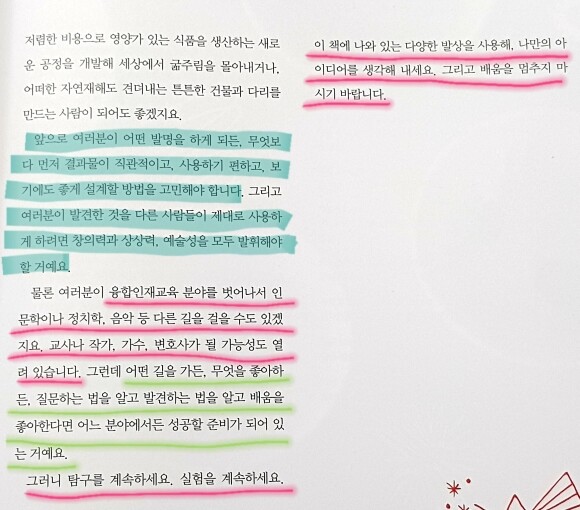 저렴한 비용으로 영양가 있는 식품을 생산하는 새로
운 공정을 개발해 세상에서 굶주림을 몰아내거나,
어떠한 자연재해도 견뎌내는 튼튼한 건물과 다리를
만드는 사람이 되어도 좋겠지요.
앞으로 여러분이 어떤 발명을 하게 되든, 무엇보
다 먼저 결과물이 직관적이고, 사용하기 편하고, 보
기에도 좋게 설계할 방법을 고민해야 합니다. 그리고
여러분이 발견한 것을 다른 사람들이 제대로 사용하
게 하려면 창의력과 상상력, 예술성을 모두 발휘해야
할 거예요.
물론 여러분이 융합인재교육 분야를 벗어나서 인
문학이나 정치학, 음악 등 다른 길을 걸을 수도 있겠
지요. 교사나 작가, 가수, 변호사가 될 가능성도 열
려 있습니다. 그런데 어떤 길을 가든, 무엇을 좋아하
든, 질문하는 법을 알고 발견하는 법을 알고 배움을
좋아한다면 어느 분야에서든 성공할 준비가 되어 있
는 거예요.
그러니 탐구를 계속하세요. 실험을 계속하세요.
이 책에 나와 있는 다양한 발상을 사용해, 나만의 아
이디어를 생각해 내세요. 그리고 배움을 멈추지 마
시기 바랍니다.